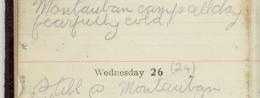 Montauban camp all day
fearfully cold!
Wednesday 26 (24)
Still @ Montauban